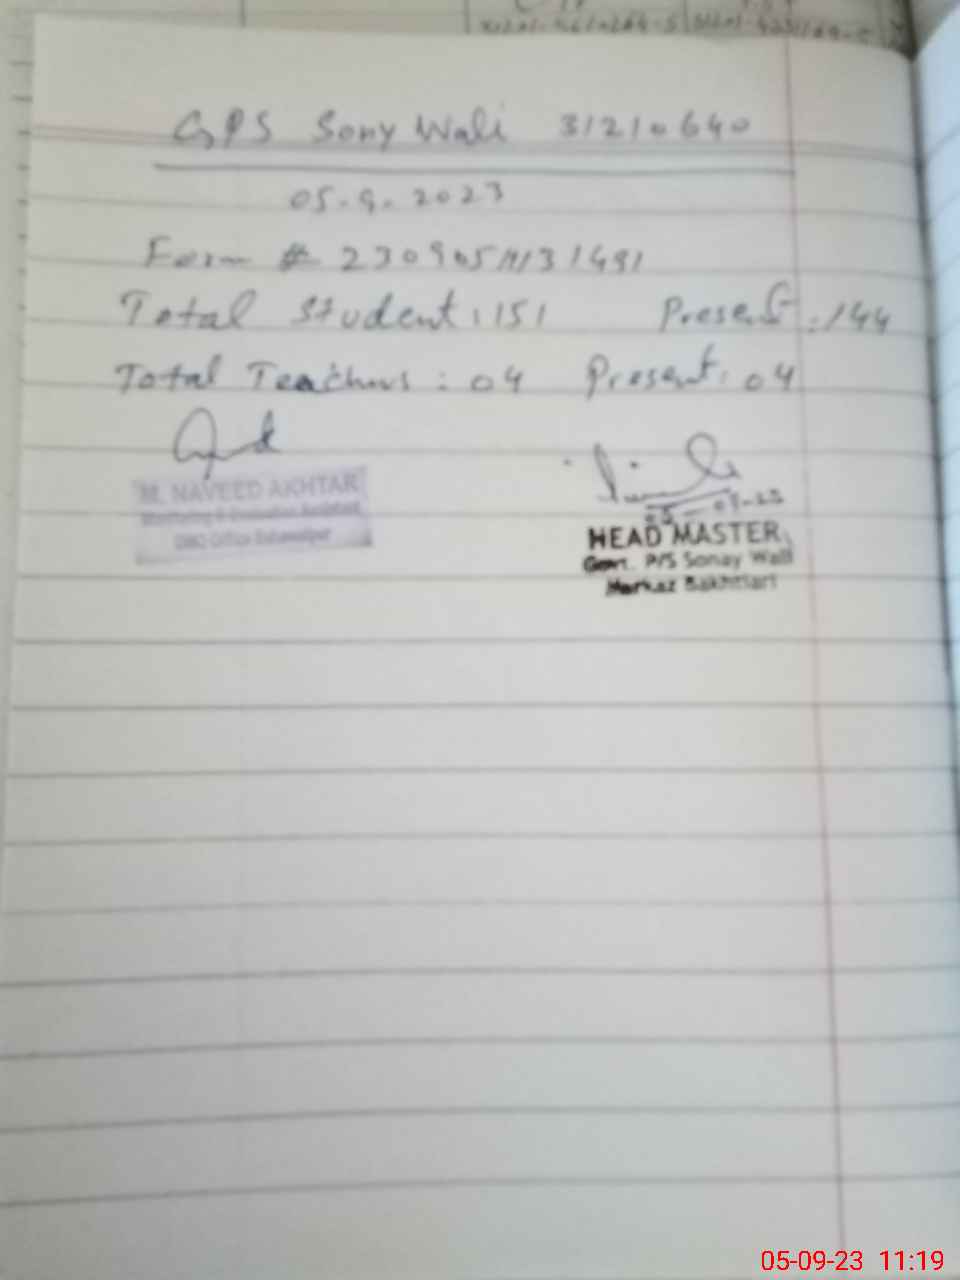 GPS Sony Wali 31210640
05-9-2023
Form # 23090511131491
Total Student: 151 Present: 144
Total Teachers: 04 Present: 04
M. NAVEED AKHTAR
Monitoring & Evaluation Assistant
DMO Office Bahawalpur
05-09-23
HEAD MASTER
Govt. P/S Sonay Wali
Markaz Bakhtiari
05-09-23 11:19